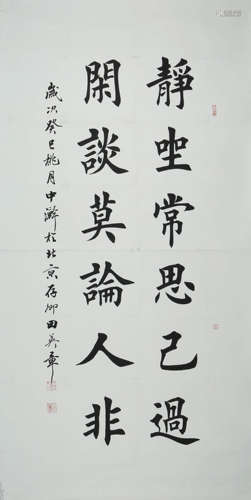 靜坐常思己過
閑談莫論人非
歲次癸巳桃月中澣於北京存卿田英章